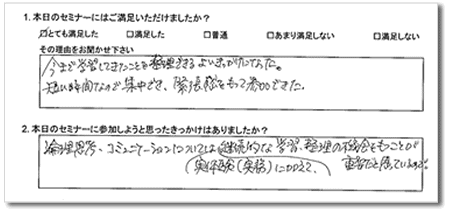 1.本日のセミナーにはご満足いただけましたか?
☑とても満足した □満足した □普通 □あまり満足しない □満足しない
その理由をお聞かせ下さい
今まで学習してきたことを整理できるよいきっかけになった。
短い時間なので集中でき、緊張感をもって参加できた。
2.本日のセミナーに参加しようと思ったきっかけはありましたか?
論理思考、コミュニケーションについては継続的な学習、整理の機会をもつことが
(実体験(実務)に加えて、 重要だと感じているため。